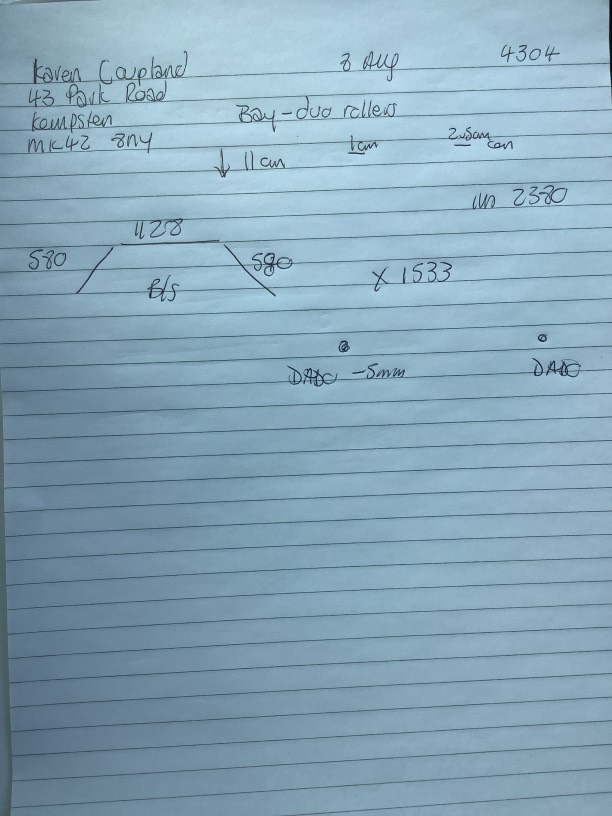 Karen Coupland 8 Aug 4304
43 Park Road
Kempston Bay - duo rollers
MK42 8NY
↓ 11 cm 1cm 2.5cm
2380
1128
580 580
B/S X 1533
DADO - 5mm DADO